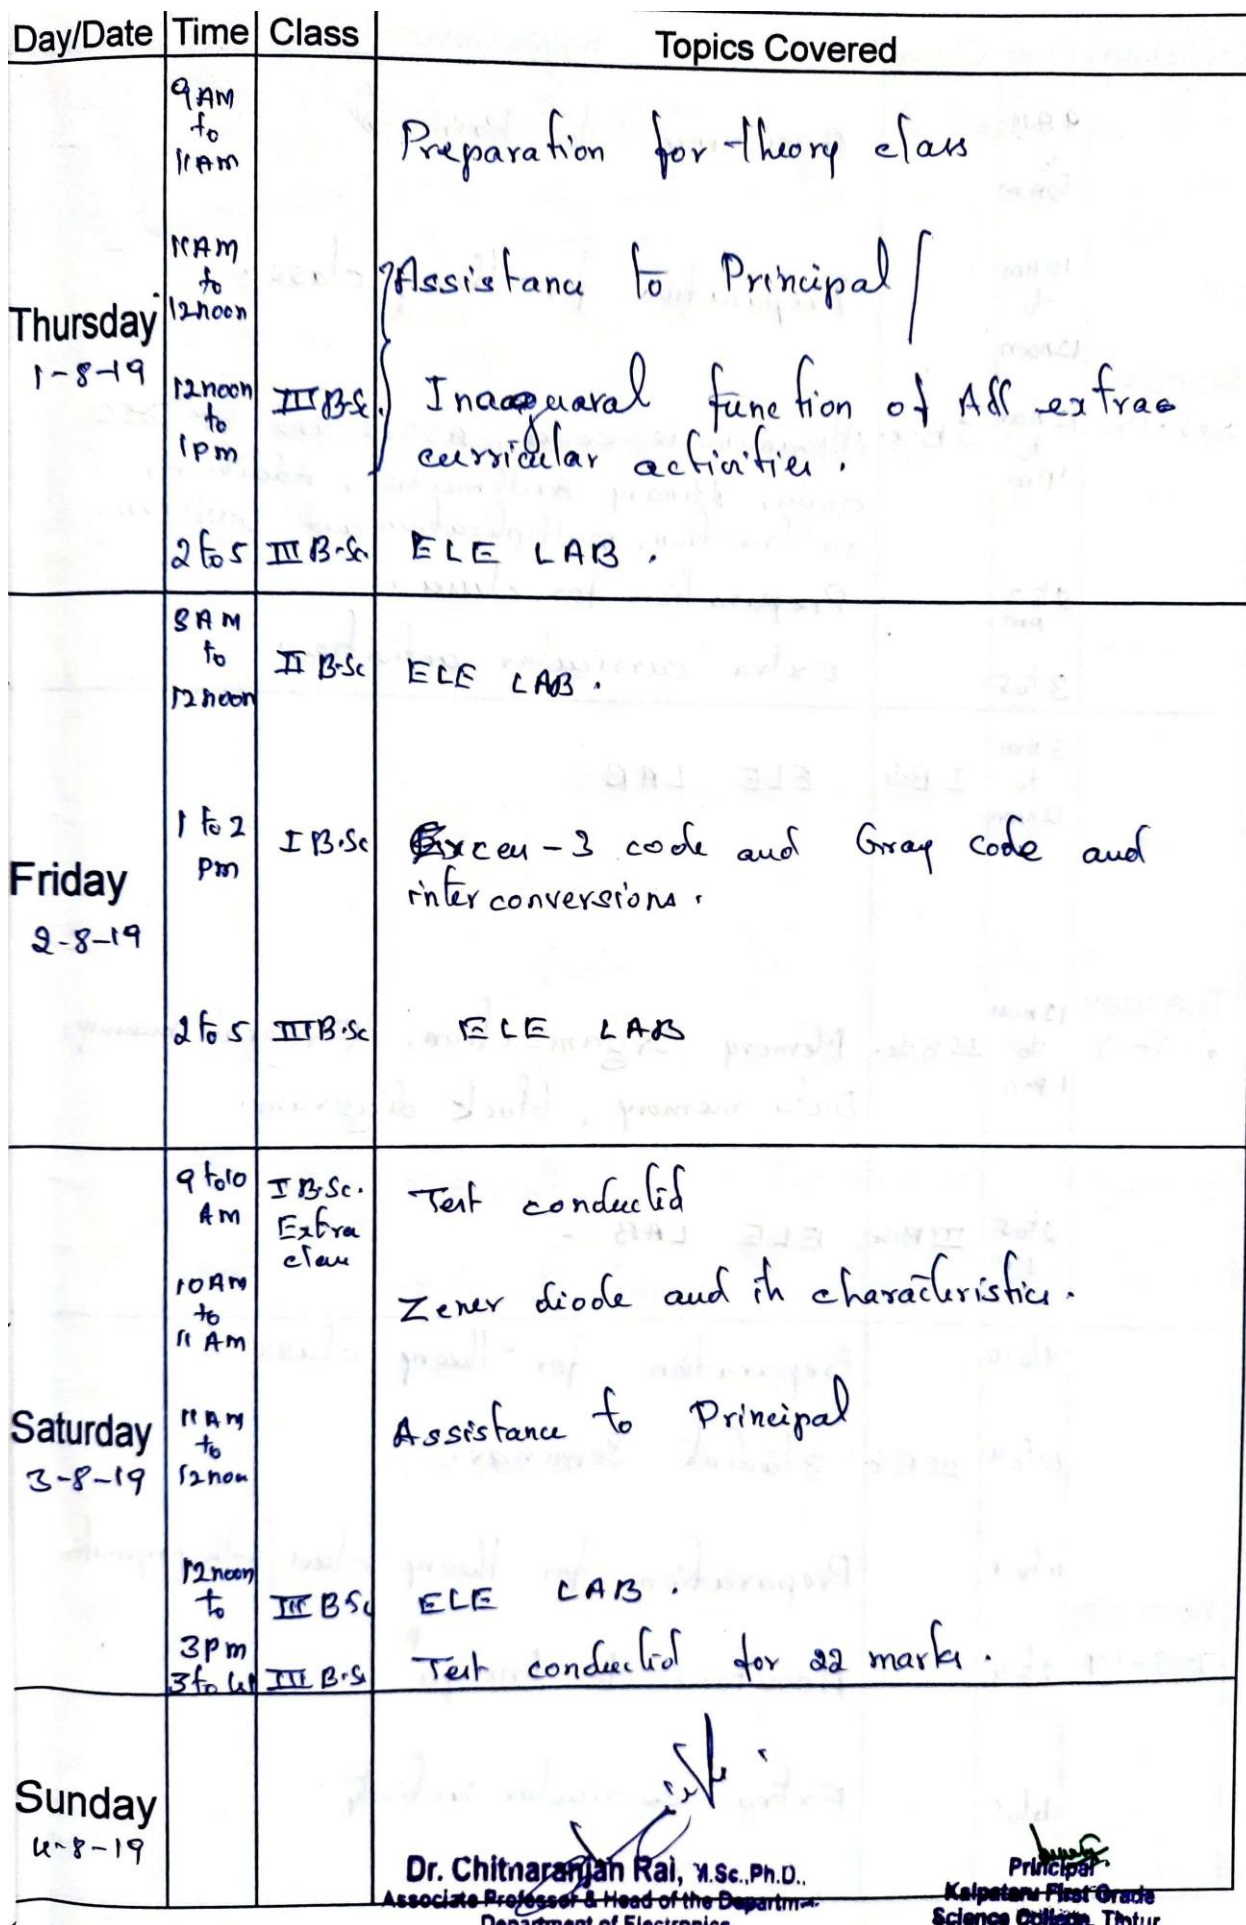 Day/Date Time Class Topics Covered
9AM
to
11AM
Preparation for theory class
Thursday
1-8-19
11AM
to
12noon
Assistance to Principal
12noon
to
1pm
III B.Sc.
function of All extra
curricular activities.
2 to 5 III B.Sc ELE LAB.
Friday
2-8-19
8AM
to
12noon
II B.Sc ELE LAB.
1 to 2
pm
I B.Sc
Excess-3 code and Gray code and
inter conversions.
2 to 5 III B.Sc ELE LAB
Saturday
3-8-19
9 to 10
AM
I B.Sc.
Extra
class
Test conducted
10AM
to
11 AM
Zener diode and its characteristics.
11AM
to
12noon
Assistance to Principal
12noon
to
3pm
III BSc ELE LAB.
3 to 4 III B.Sc Test conducted for 22 marks.
Sunday
4-8-19
Dr. Chitharanjan Rai, M.Sc.,Ph.D.,
Associate Professor & Head of the Departm
Department of Electronics
Principal
Kalpataru First Grade
Science College, Tiptur